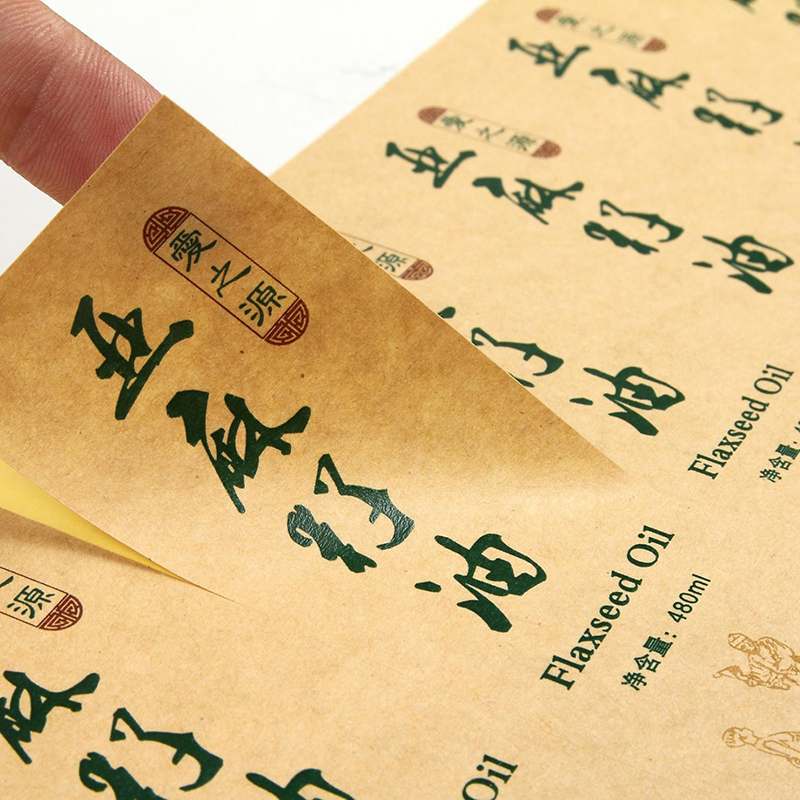 愛之源
亚麻籽
愛之源
亚麻籽油
源
籽油
Flaxseed Oil
净含量:
愛之源
亚麻籽油
Flaxseed Oil
净含量：480ml
源
麻籽油
Oil